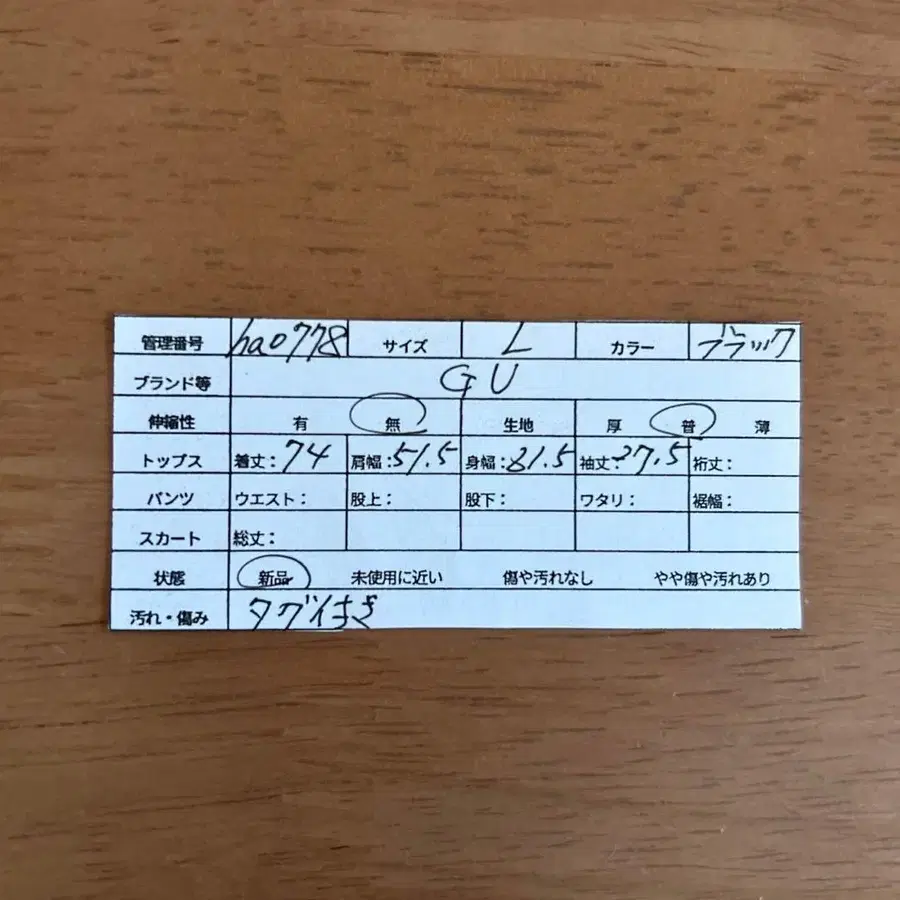 管理番号 ha0778 サイズ L カラー ブラック
ブランド等 GU
伸縮性 有 無 生地 厚 普 薄
トップス 着丈:74 肩幅:51.5 身幅:81.5 袖丈:27.5 裄丈:
パンツ ウエスト: 股上: 股下: ワタリ: 裾幅:
スカート 総丈:
状態 新品 未使用に近い 傷や汚れなし やや傷や汚れあり
汚れ・傷み タグ付き